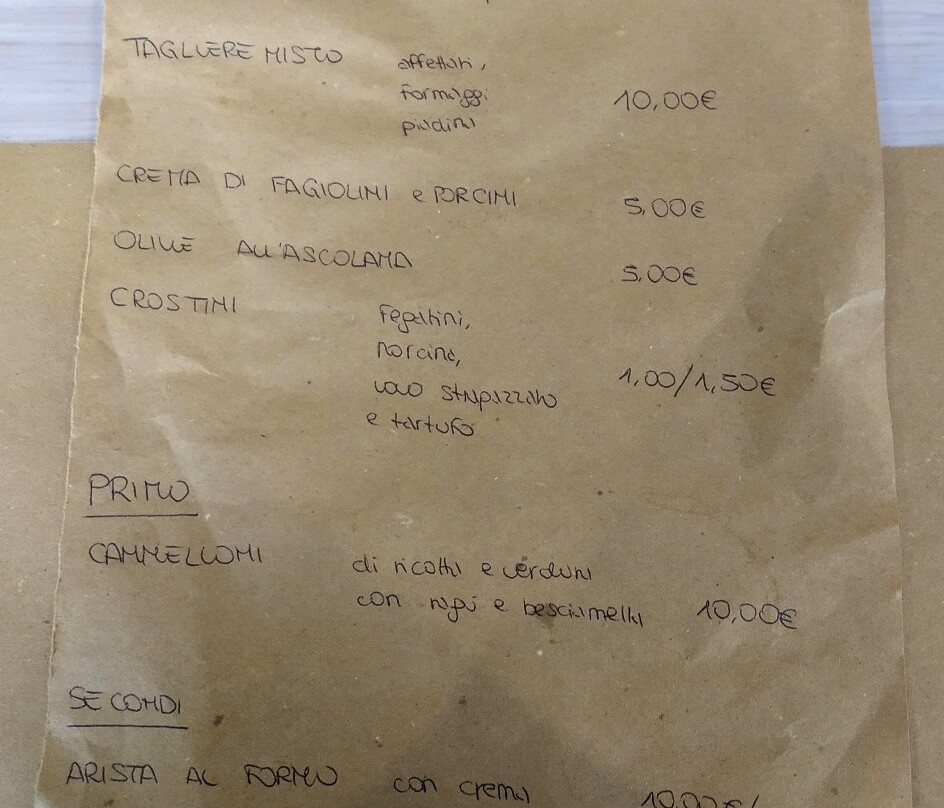 TAGLIERE MISTO affettati,
formaggi 10,00€
piadina
CREMA DI FAGIOLINI e PORCINI 5,00€
OLIVE ALL'ASCOLANA 5,00€
CROSTINI fegatini,
norcina,
uovo strapazzato 1,00/1,50€
e tartufo
PRIMO
CANNELLONI di ricotta e verdura
con ragù e besciamella 10,00€
SECONDI
ARISTA AL FORNO con crema 10,00€/